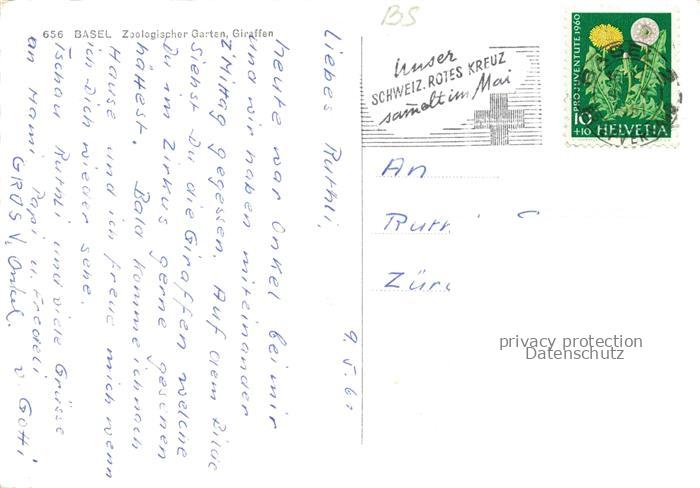 656 BASEL Zoologischer Garten, Giraffen
BS
Unser
SCHWEIZ. ROTES KREUZ
sammelt im Mai
PRO JUVENTUTE 1960
10
+10 HELVETIA
9. 5. 61
Liebes Ruthli,
heute war Onkel bei mir
und wir haben miteinander
z'Mittag gegessen. Auf dem Bilde
siehst Du die Giraffen welche
Du im Zirkus gerne gesehen
hättest. Bald komme ich nach
Hause und ich freue mich wenn
ich Dich wieder sehe.
Tschau Ruthli und viele Grüsse
an Mami Papi u. Fredeli
v Gotti
GRUS V. Onkel.
An
Ruth
Züri
privacy protection
Datenschutz